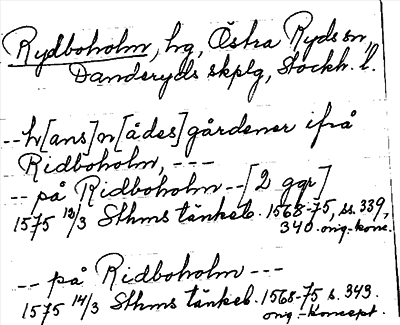 Rydboholm, hg, Östra Ryds sn,
Danderyds skplg, Stockh. l.
--h[ans] n[ådes] gårdener ifrå
Ridboholm, ---
-- på Ridboholm --[2 ggr]
1575 13/3 Sthms tänkeb. 1568-75, ss. 339,
340. orig.-konc.
-- på Ridboholm ---
1575 14/3 Sthms tänkeb. 1568-75 s. 343.
orig.-koncept.